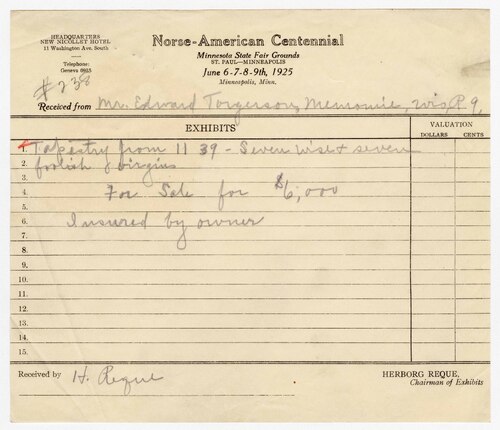 HEADQUARTERS
NEW NICOLLET HOTEL
11 Washington Ave. South
Telephone:
Geneva 6925
Norse-American Centennial
Minnesota State Fair Grounds
ST. PAUL—MINNEAPOLIS
June 6-7-8-9th, 1925
Minneapolis, Minn.
#238
Received from Mr. Edward Torgerson, Menomonie, Wis, R 9,
EXHIBITS
VALUATION
DOLLARS CENTS
1. Tapestry from 1139 - Seven wise & seven
2. foolish virgins
3.
4. For Sale for $6,000
5.
6. Insured by owner
7.
8.
9.
10.
11.
12.
13.
14.
15.
Received by H. Reque
HERBORG REQUE,
Chairman of Exhibits